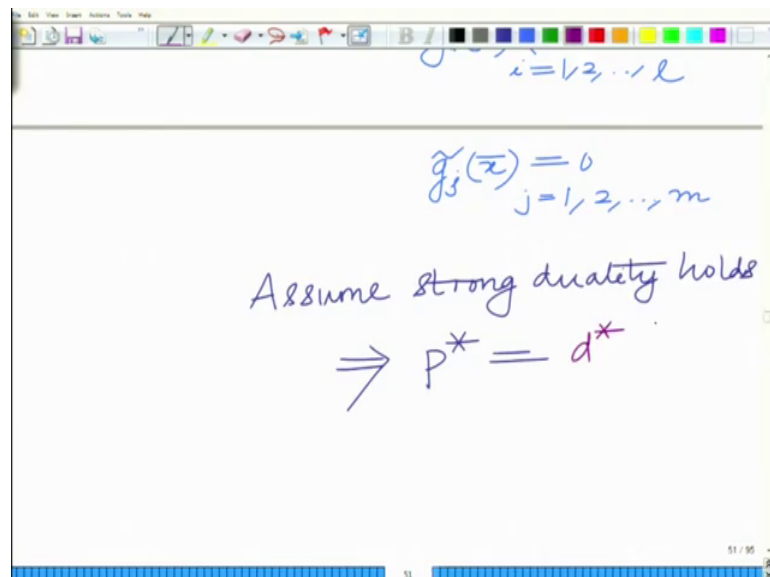 File Edit View Insert Actions Tools Help
B I
i=1,2,..,l
g̃ⱼ(x̄) = 0
j=1,2,..,m
Assume strong duality holds
⇒ p* = d*
51 / 95
51